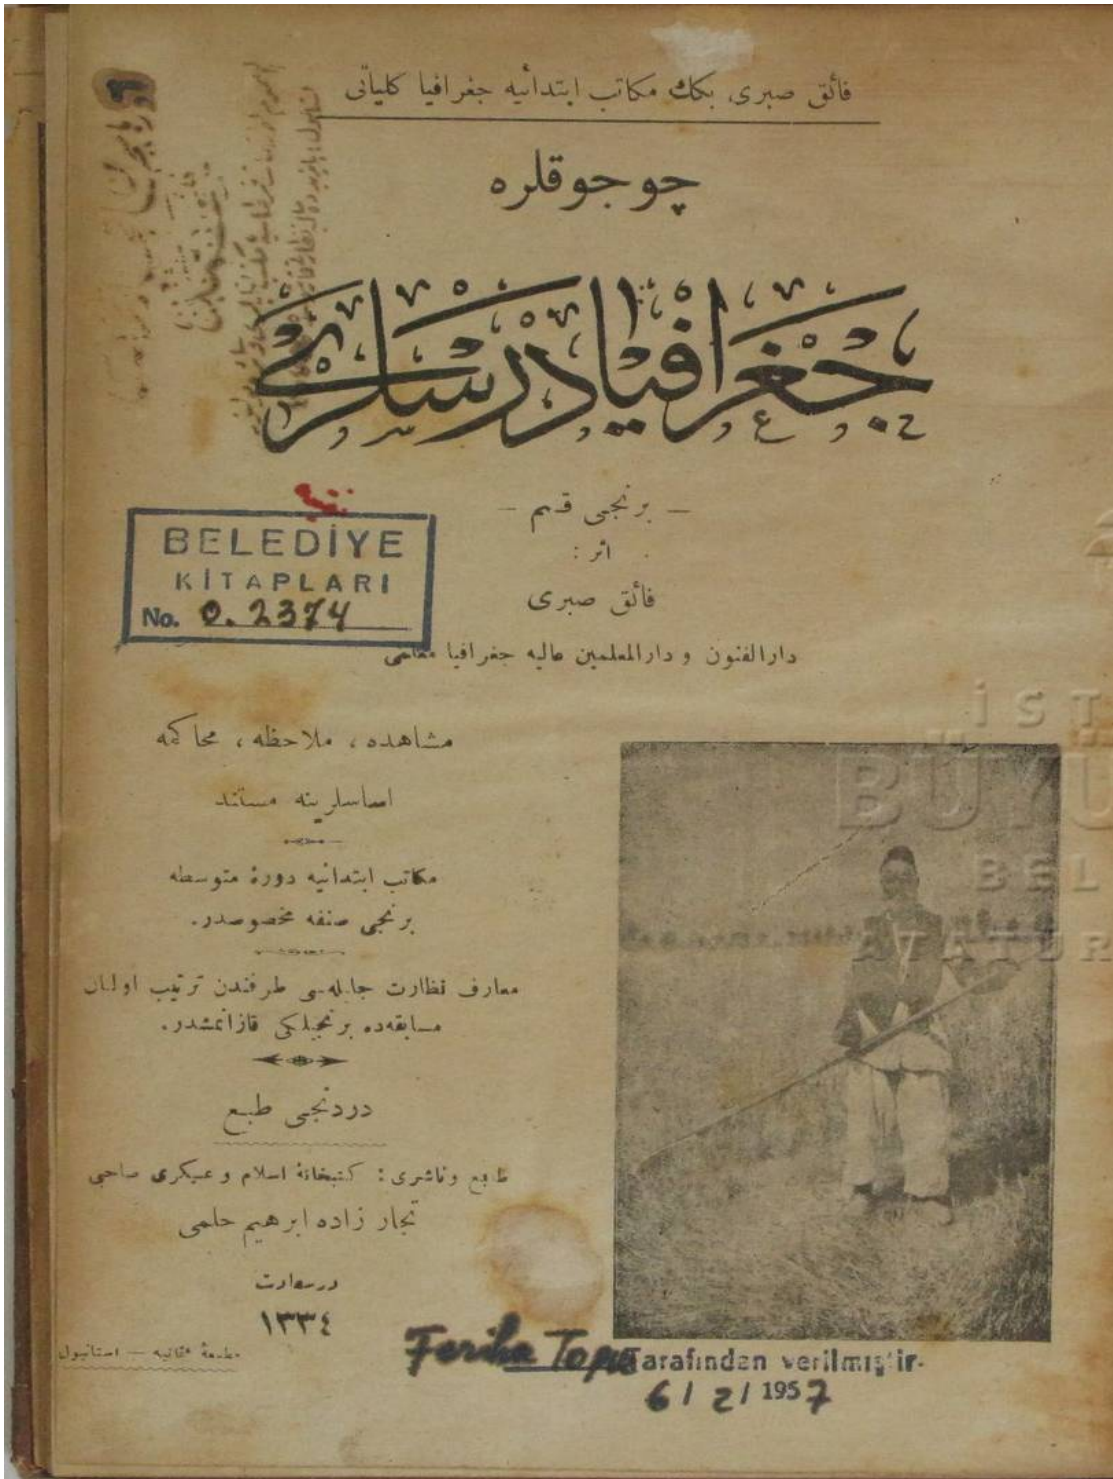 فائق صبری بكك مكاتب ابتدائیه جغرافیا كلیاتی
چوجوقلره
جغرافیا درسلری
— برنجی قسم —
اثر :
فائق صبری
دارالفنون و دارالمعلمین عالیه جغرافیا معلمی
BELEDİYE
KİTAPLARI
No. 0. 2374
مشاهده ، ملاحظه ، محاكمه
اساسلرینه مستند
مكاتب ابتدائیه دورهٔ متوسطه
برنجی صنفه مخصوصدر.
معارف نظارت جلیله‌سی طرفندن ترتیب اولنان
مسابقه‌ده برنجیلكی قازانمشدر.
دردنجی طبع
طابع و ناشری : كتبخانهٔ اسلام و عسكری صاحبی
تجار زاده ابرهیم حلمی
درسعادت
١٣٣٤
مطبعهٔ عثمانیه — استانبول
Feriha
Tarafından verilmiştir.
6 / 2 / 1957
İST
BÜYÜ
BEL
ATATÜR